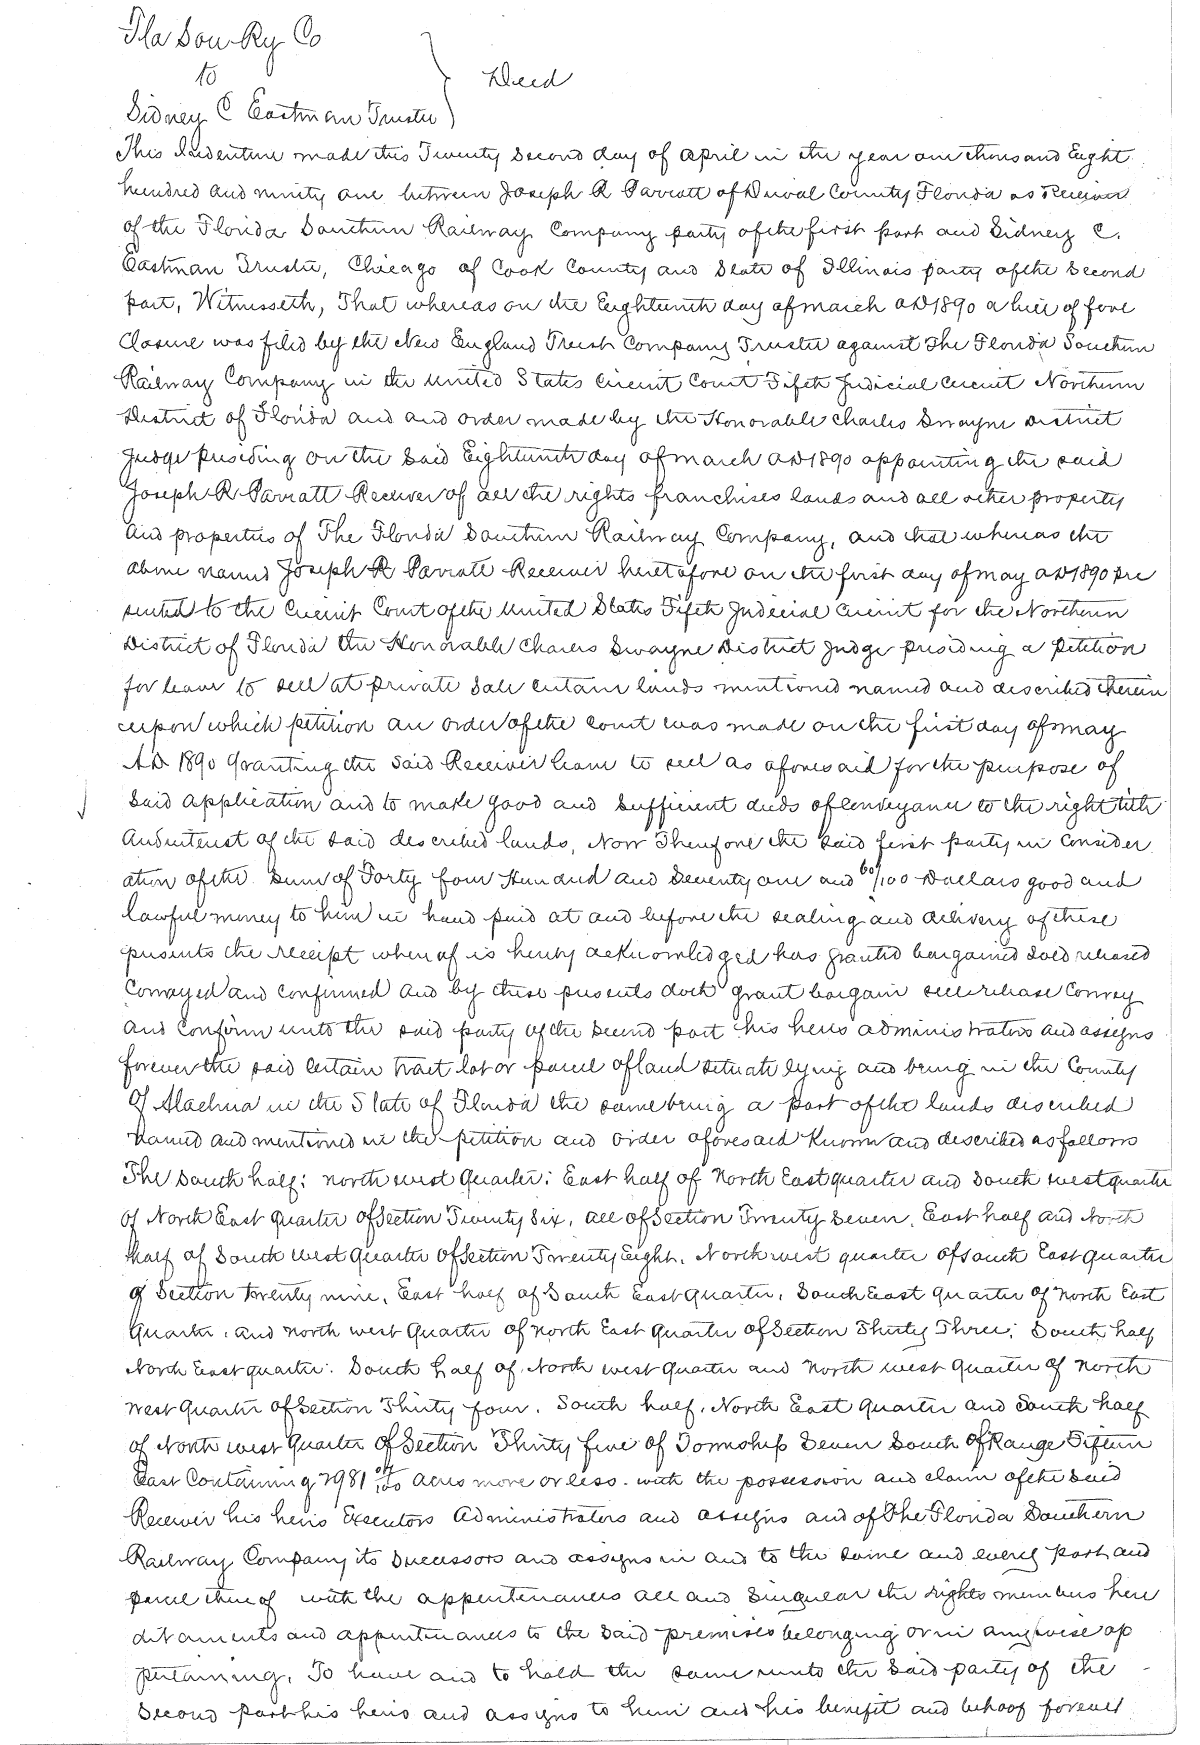 Fla Sou Ry Co
to
Deed
Sidney C Eastman Trustee
This Indenture made this Twenty Second day of April in the year one thousand Eight
hundred and ninety one between Joseph R Parrott of Duval County Florida as Receiver
of the Florida Southern Railway Company party of the first part and Sidney C.
Eastman Trustee, Chicago of Cook County and State of Illinois party of the Second
part, Witnesseth, That whereas on the Eighteenth day of march AD 1890 a bill of fore
Closure was filed by the New England Trust Company Trustee against The Florida Southern
Railway Company in the United States Circuit Court Fifth Judicial Circuit Northern
District of Florida and and order made by the Honorable Charles Swayne District
Judge presiding on the said Eighteenth day of march AD 1890 appointing the said
Joseph R Parrott Receiver of all the rights franchises lands and all other property
and properties of The Florida Southern Railway Company, and that whereas the
above named Joseph R Parrott Receiver heretofore on the first day of may AD 1890 pre
sented to the Circuit Court of the United States Fifth Judicial Circuit for the Northern
District of Florida the Honorable Charles Swayne District Judge presiding a petition
for leave to sell at private sale certain lands mentioned named and described therein
upon which petition an order of the court was made on the first day of may
AD 1890 granting the said Receiver leave to sell as aforesaid for the purpose of
said application and to make good and sufficient deeds of conveyance to the right title
and interest of the said described lands, Now Therefore the said first party in consider
ation of the sum of Forty four Hundred and Seventy one and 60/100 Dollars good and
lawful money to him in hand paid at and before the sealing and delivery of these
presents the receipt whereof is hereby acknowledged has granted bargained sold released
Conveyed and confirmed and by these presents doth grant bargain sell release Convey
and Confirm unto the said party of the second part his heirs administrators and assigns
forever the said certain tract lot or parcel of land situate lying and being in the County
of Alachua in the State of Florida the same being a part of the lands discribed
named and mentioned in the petition and order aforesaid Known and described as follows
The South half; north west Quarter; East half of North East quarter and South west quarter
of North East Quarter of Section Twenty Six, all of Section Twenty Seven, East half and North
half of South west Quarter of Section Twenty Eight, North west quarter of South East quarter
of Section twenty nine, East half of South East Quarter, South East quarter of North East
Quarter, and north west Quarter of north East Quarter of Section Thirty Three; South half
North East quarter; South half of North west quarter and North west Quarter of North
West Quarter of Section Thirty four. South half, North East Quarter and South half
of North west Quarter of Section Thirty five of Township Seven South of Range Fifteen
East Containing 2981 acres more or less. with the possession and claim of the said
Receiver his heirs Executors Administrators and assigns and of The Florida Southern
Railway Company its Successors and assigns in and to the same and every part and
parcel thereof with the appurtenances all and Singular the rights members here
ditaments and appurtenances to the said premises belonging or in anywise ap
pertaining, To have and to hold the same unto the said party of the
Second part his heirs and assigns to him and his benefit and behoof forever